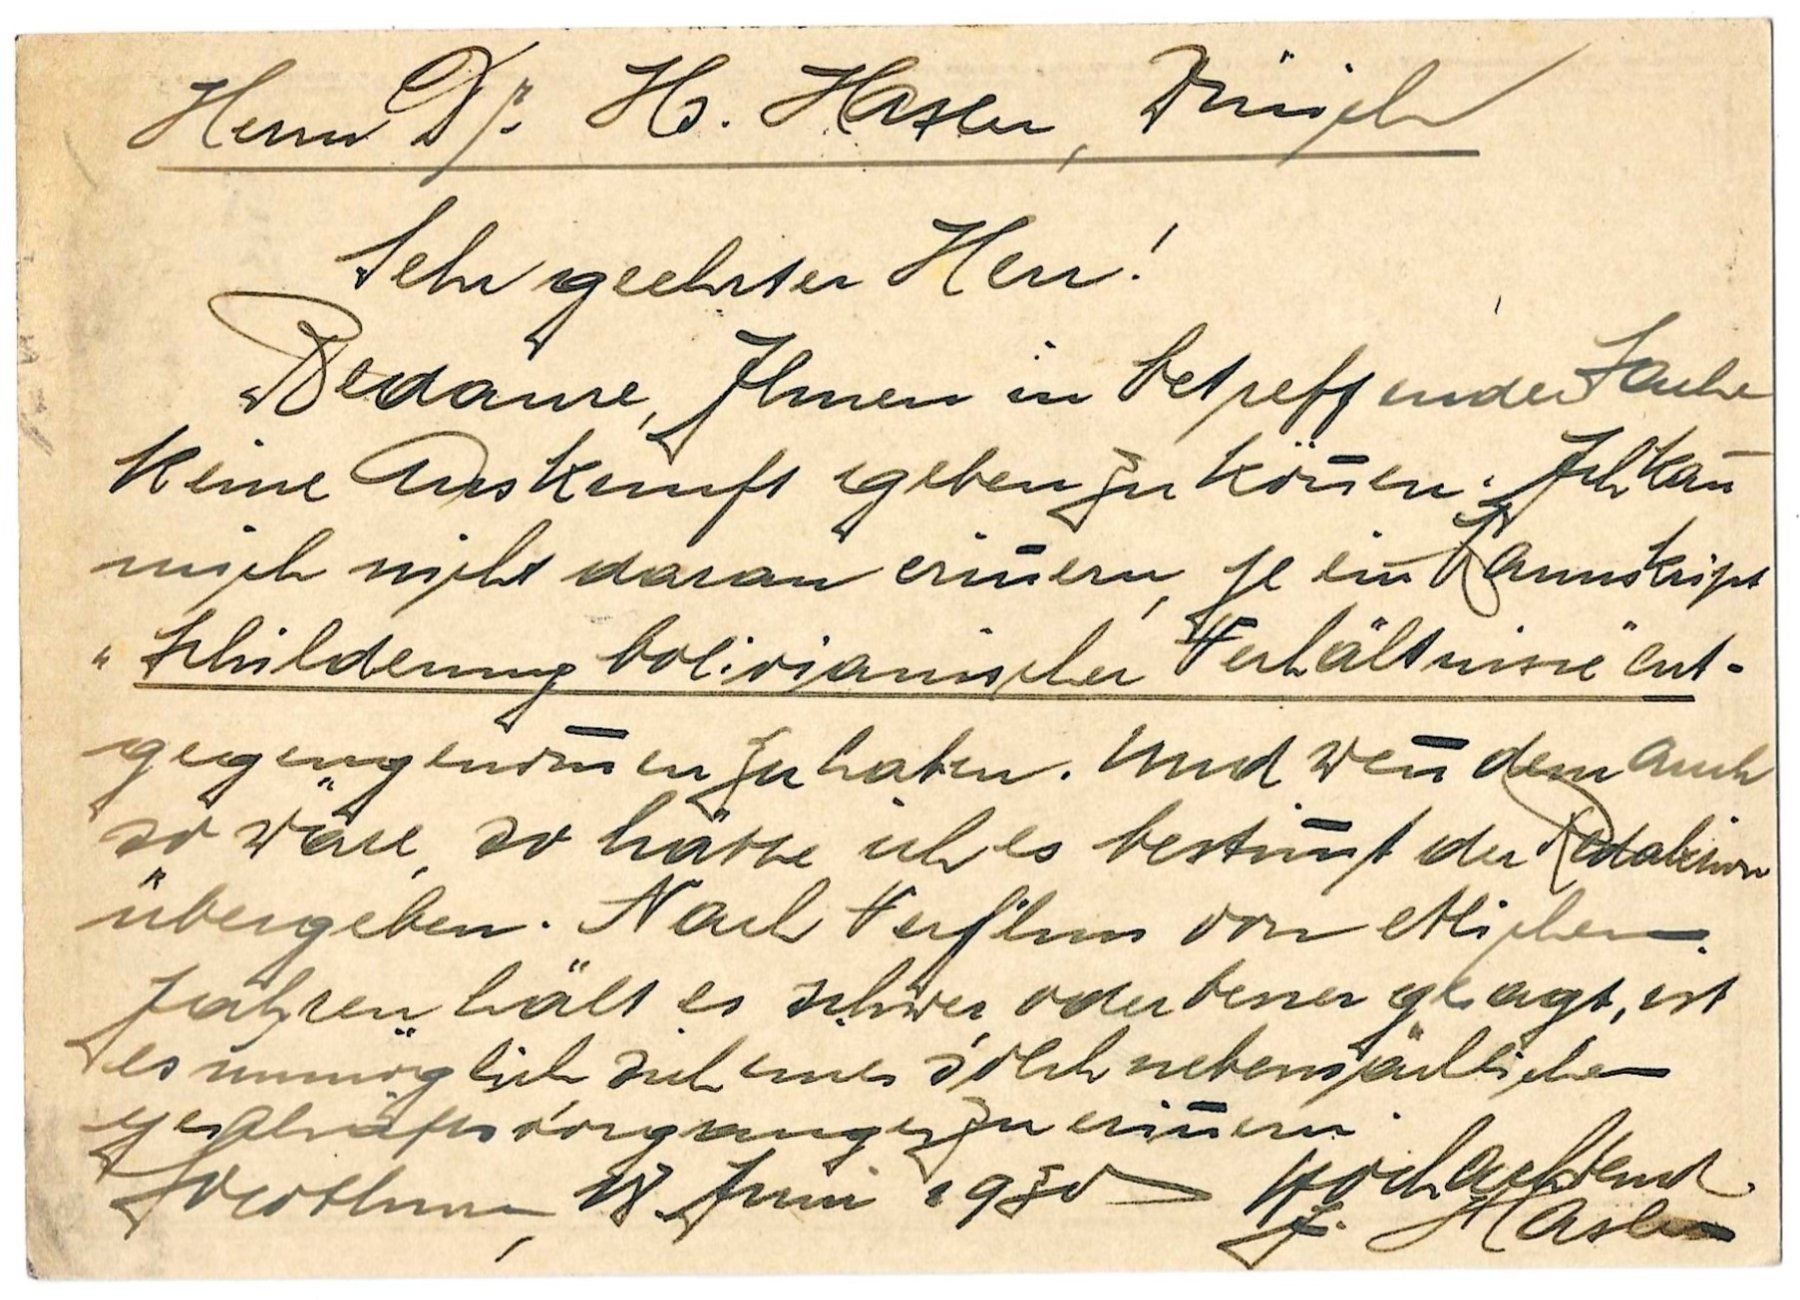 Herrn Dr. H. Hasler, Zürich
Sehr geehrter Herr!
Bedaure, Ihnen in betreffender Sache
keine Auskunft geben zu kön̄en. Ich kan̄
mich nicht daran erin̄ern, je ein Manuskript
"Schilderung bolivianischer Verhältnisse" ent-
gegengenom̄en zu haben. Und wen̄ dem auch
so wäre, so hätte ich es bestim̄t der Redaktion
übergeben. Nach Verfluss von etlichen
Jahren hält es schwer, oder besser gesagt, ist
es unmöglich, sich eines solch nebensächlichen
Geschäftsvorganges zu erin̄ern.
Solothurn, Juni 1930 Hochachtend
J. Hasler